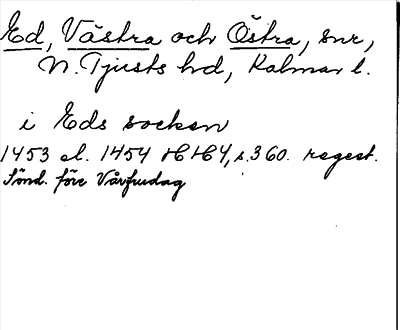 Ed, Västra och Östra, snr,
N. Tjusts hd, Kalmar l.
i Eds socken
1453 el. 1454 HH4, s. 360. regest.
Sönd. före Vårfrudag